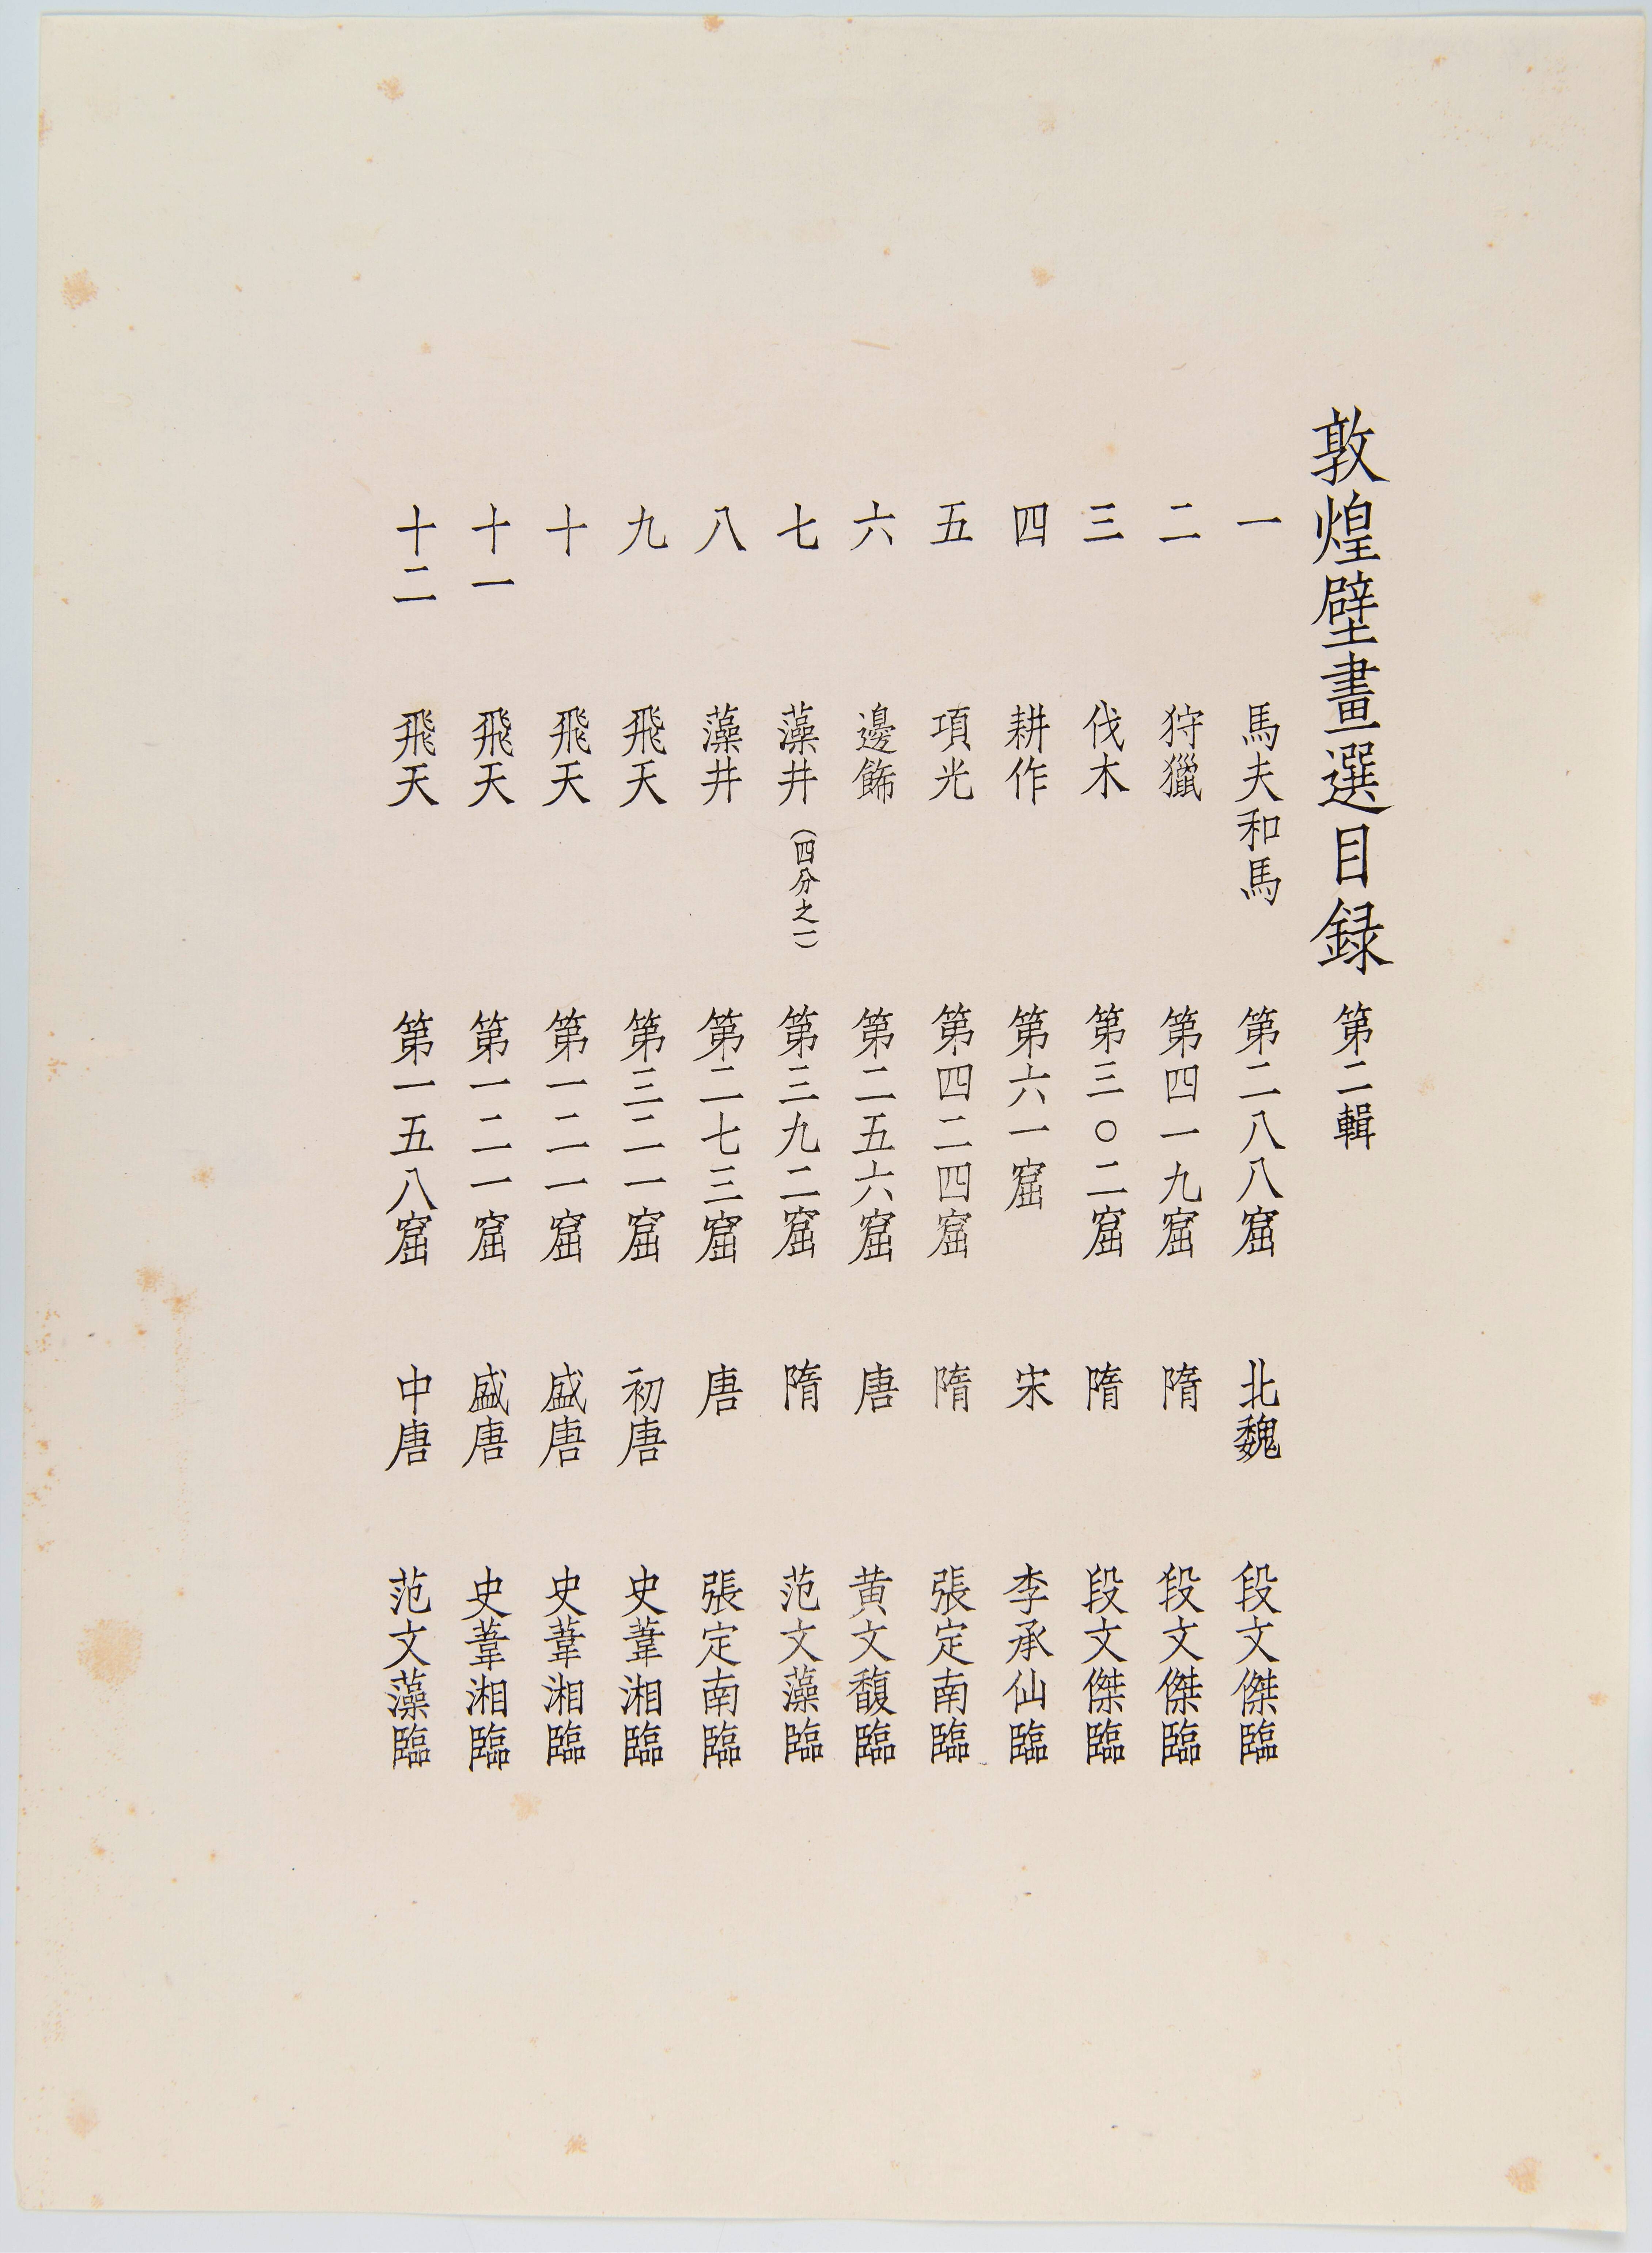 敦煌壁畫選目録 第二輯
一 馬夫和馬 第二八八窟 北魏 段文傑臨
二 狩獵 第四一九窟 隋 段文傑臨
三 伐木 第三〇二窟 隋 段文傑臨
四 耕作 第六一窟 宋 李承仙臨
五 項光 第四二四窟 隋 張定南臨
六 邊飾 第二五六窟 唐 黄文馥臨
七 藻井（四分之一） 第三九二窟 隋 范文藻臨
八 藻井 第二七三窟 唐 張定南臨
九 飛天 第三二一窟 初唐 史葦湘臨
十 飛天 第一二一窟 盛唐 史葦湘臨
十一 飛天 第一二一窟 盛唐 史葦湘臨
十二 飛天 第一五八窟 中唐 范文藻臨